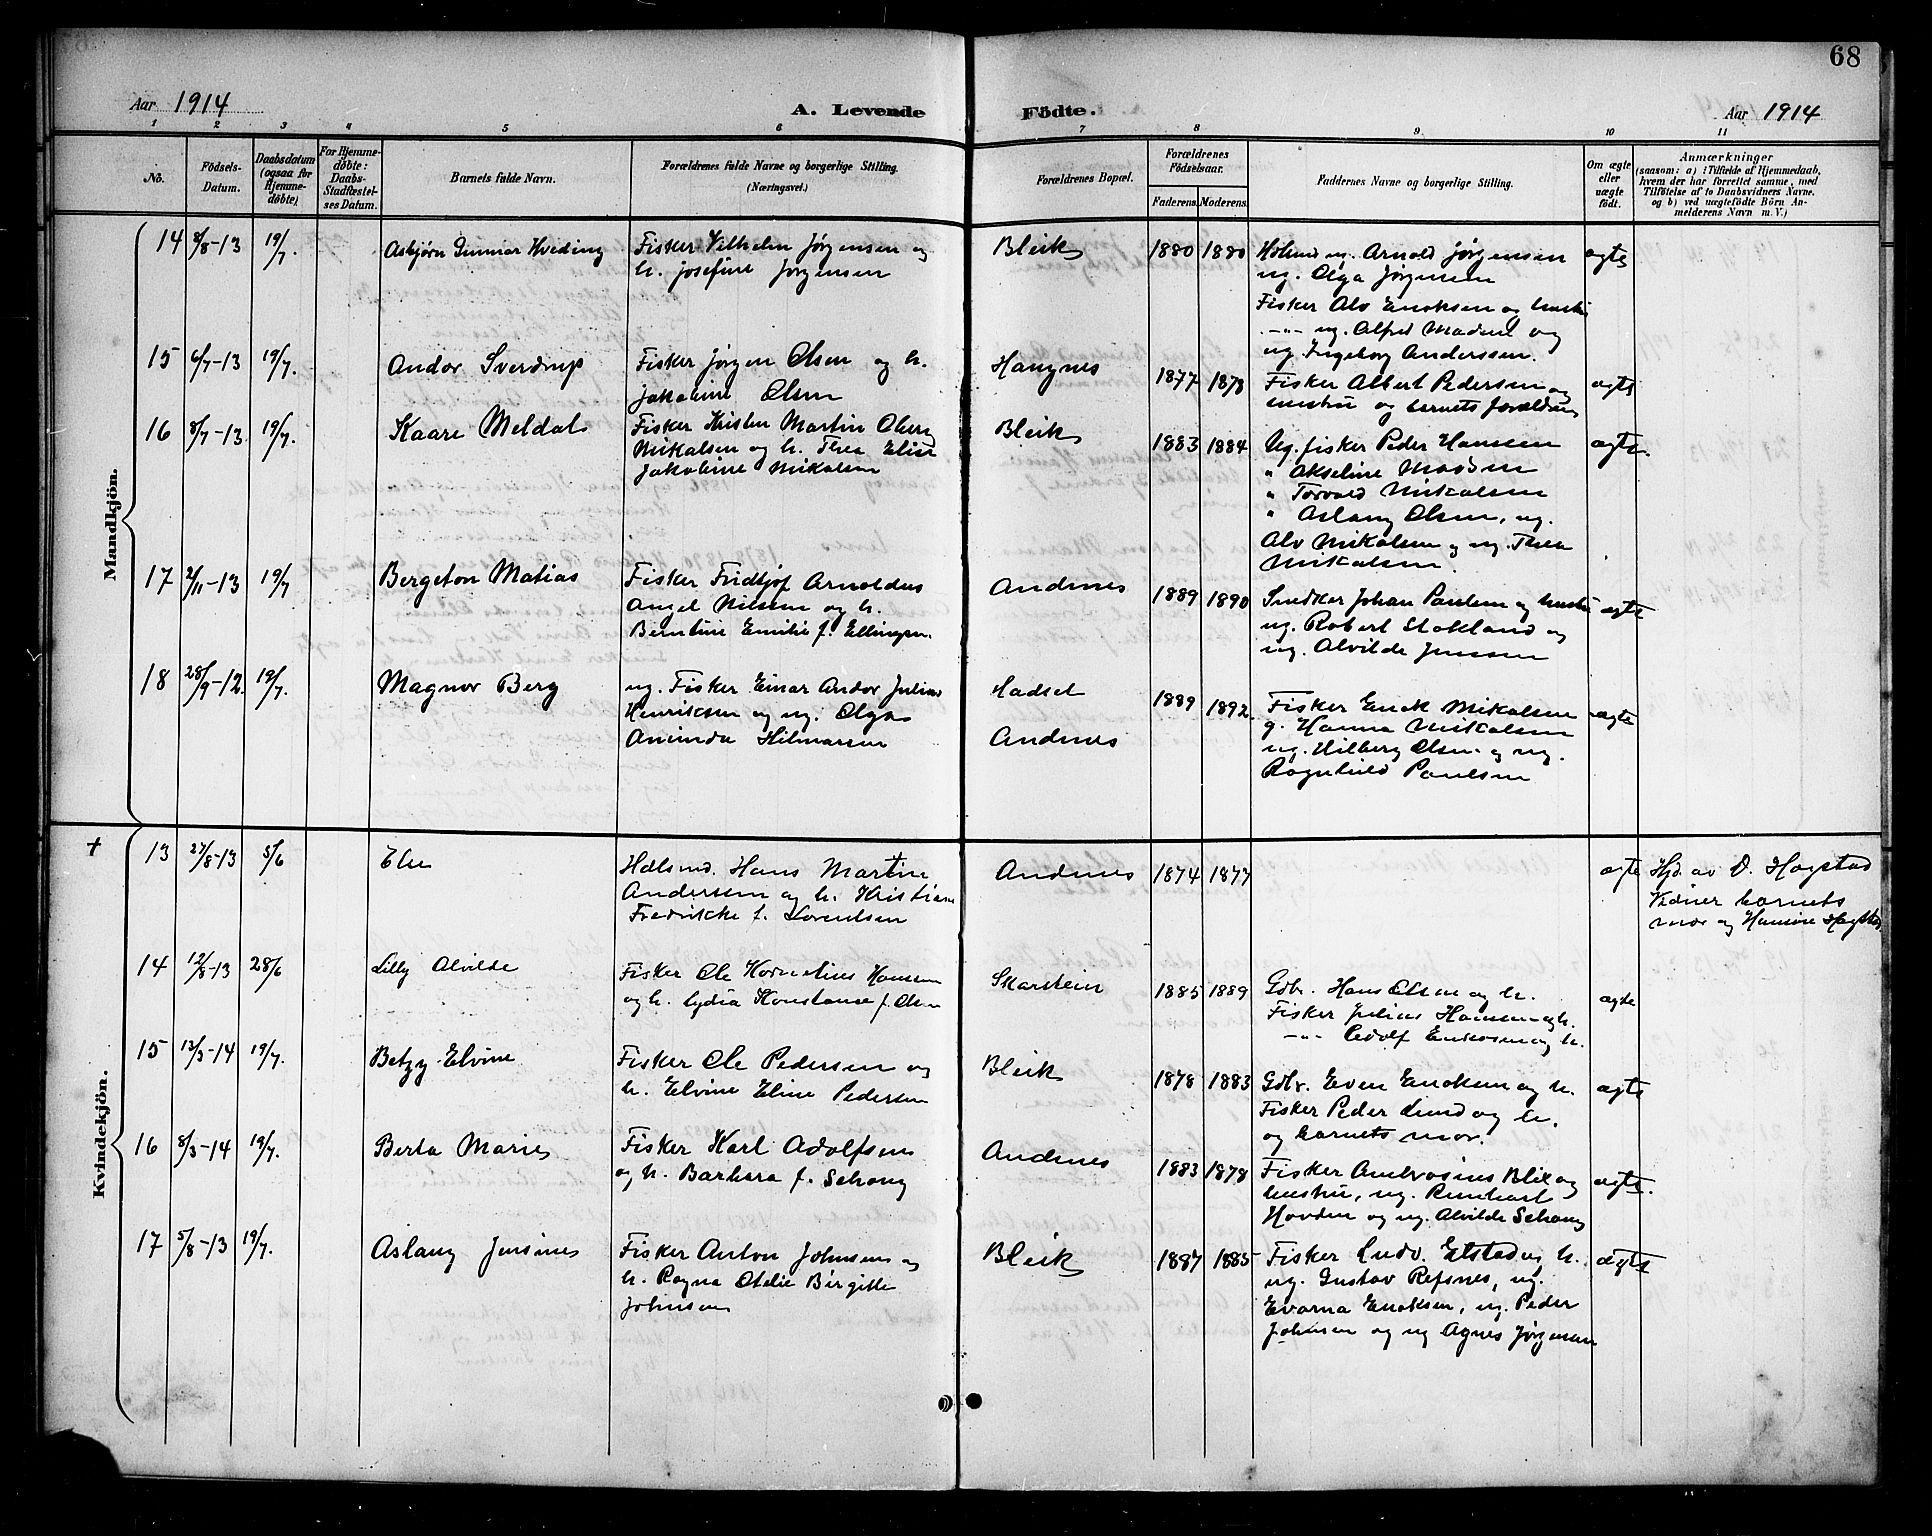 68
Aar 1914
A. Levende
Födte.
Aar 1914
1 2 3 4 5 6 7 8 9 10 11
No.
Födsels-
Datum.
Daabsdatum
(ogsaa for
Hjemme-
döbte)
For Hjemme-
döbte:
Daabs-
Stadfæstel-
ses Datum.
Barnets fulde Navn.
Forældrenes fulde Navne og borgerlige Stilling.
(Næringsvei.)
Forældrenes Bopæl.
Forældrenes
Födselsaar.
Faderens. Moderens.
Faddernes Navne og borgerlige Stilling.
Om ægte
eller
uægte
født.
Anmærkninger
(saasom: a) i Tilfælde af Hjemmedaab,
hvem der har forrettet samme, med
Tilføielse af to Daabsvidners Navne.
og b) ved uægtefödte Börn An-
melderens Navn m. V.)
Mandkjön.
14 8/8-13 19/7. Asbjørn Gunnar Hveding
Fisker Vilhelm Jørgensen og
h. Josefine Jørgensen
Bleik 1880 1880
ug. Arnold Jørgensen
ug. Olga Jørgensen
Fisker Alv Enoksen og hustru
-"- ug. Alfred Madsen og
ug. Ingeborg Anderssen.
ægte
15 6/7-13 19/7. Andor Sverdrup
Fisker Jørgen Olsen og h.
Jakobine Olsen
Haugnes 1877 1878
Fisker Albert Pedersen og
hustru og barnets forældre
ægte
16 8/7-13. 19/7. Kaare Meldal
Fisker Kristen Martin Olsen
Mikalsen og h. Thea Elise
Jakobine Mikalsen
Bleik 1883 1884
Ug. fisker Peder Hanssen
" Akseline Madsen
" Torvald Mikalsen
" Aslaug Olsen, ug.
Alv Mikalsen og ug. Thea
Mikalsen.
ægte.
17 2/11-13 19/7 Bergeton Matias
Fisker Fridtjof Arnoldus
Angel Nilsen og h.
Berntine Emilie f. Ellingsen.
Andenes 1889 1890
Snedker Johan Paulsen og hustru
ug. Robert Stokland og
ug. Alvilde Jenssen
ægte
18 28/9-12. 19/7. Magnor Berg
ug. Fisker Einar Andor Julius
Henriksen og ug. Olga
Aminda Hilmarsen
Hadsel
Andenes
1889 1892.
Fisker Enok Mikalsen
g. Hanna Mikalsen
ug. Hilberg Olsen og ug.
Ragnhild Paulsen
ægte
Kvindekjön.
+ 13 27/8-13 5/6 Else
Hans Martin
Andersen og h. Kristiane
Fredrikke f. Lorentsen
Andenes 1874 1877
ægte Hjd. av O. Hagstad
Vidner barnets
mor og Hansine Hagstad
14 12/8-13 28/6 Lilly Alvilde
Fisker Ole Kornelius Hansen
og h. Lydia Konstanse f. Olsen
Skarstein 1885 1889
Gdbr. Hans Olsen og h.
Fisker Julius Hansen og h.
-"- Edolf Enoksen og h.
ægte
15 13/3-14 19/7. Betzy Elvine
Fisker Ole Pedersen og
h. Elvine Eline Pedersen
Bleik 1878 1883
Gdbr. Even Enoksen og h.
Fisker Peder Lund og h.
og barnets mor.
ægte
16 8/3-14 19/7. Berta Marie
Fisker Karl Adolfsen
og h. Barbara f. Schong
Andenes 1883 1878
Fisker Ambrosius Blix og
hustru, ug. Reinhart
Hovden og ug. Alvilde Schong
ægte.
17 5/8-13 19/7. Aslaug Jensine
Fisker Anton Johnsen og
h. Ragna Otelie Birgitte
Johnsen
Bleik 1887 1885
Fisker Ludv. Elstad og h.
ug. Gustav Refsnes, ug.
Evarna Enoksen, ug. Peder
Johnsen og ug Agnes Jørgensen
ægte